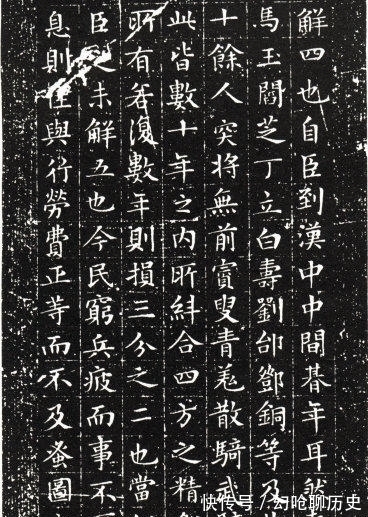 觧四也自臣到漢中中間朞年耳然
馬王閻芝丁立白壽劉郃鄧銅等及
十餘人突將無前賨叟青羌散騎武
此皆數十年之內所糾合四方之精
所有若復數年則損三分之二也當
臣之未解五也今民窮兵疲而事不
息則住與行勞費正等而不及蚤圖
快传号/幻呛聊历史